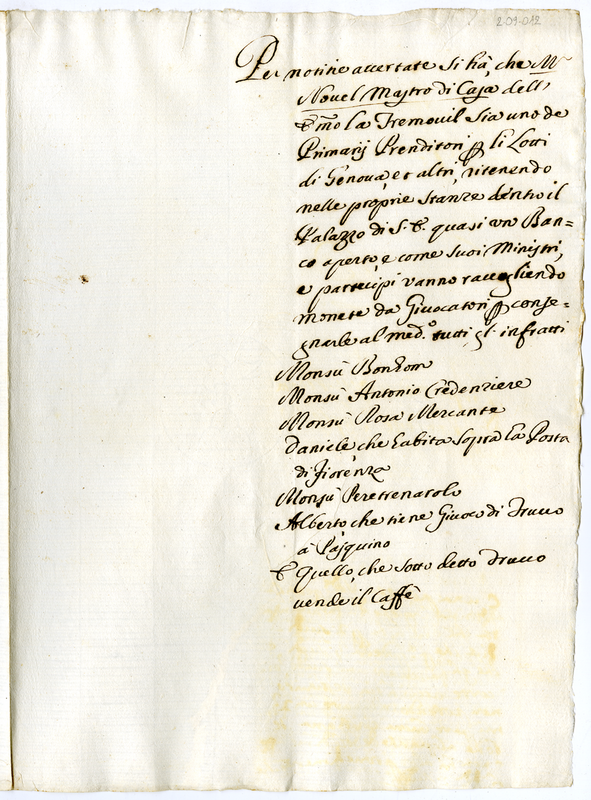 2-09-012
Per notitie accertate si hà, che M.r
Novel Mastro di Casa dell'
E͞mo la Tremouil sia uno de
Primarij Prenditori ꝑ li Lotti
di Genova, et altri, ritenendo
nelle proprie stanze dentro il
Palazzo di S. E. quasi un Ban=
co aperto, e come suoi Ministri,
e partecipi vanno raccogliendo
monete da Giuocatori ꝑ conse=
gnarle al med.o tutti gl'infratti
Monsù Bonhom
Monsù Antonio Credenziere
Monsù Rosa Mercante
Daniele che habita sopra la Posta
di Fiorenza
Monsù Peretrenarolo
Alberto, che tiene Giuoco di Trucco
à Pasquino
E Quello, che sotto detto Trucco
vende il Caffè